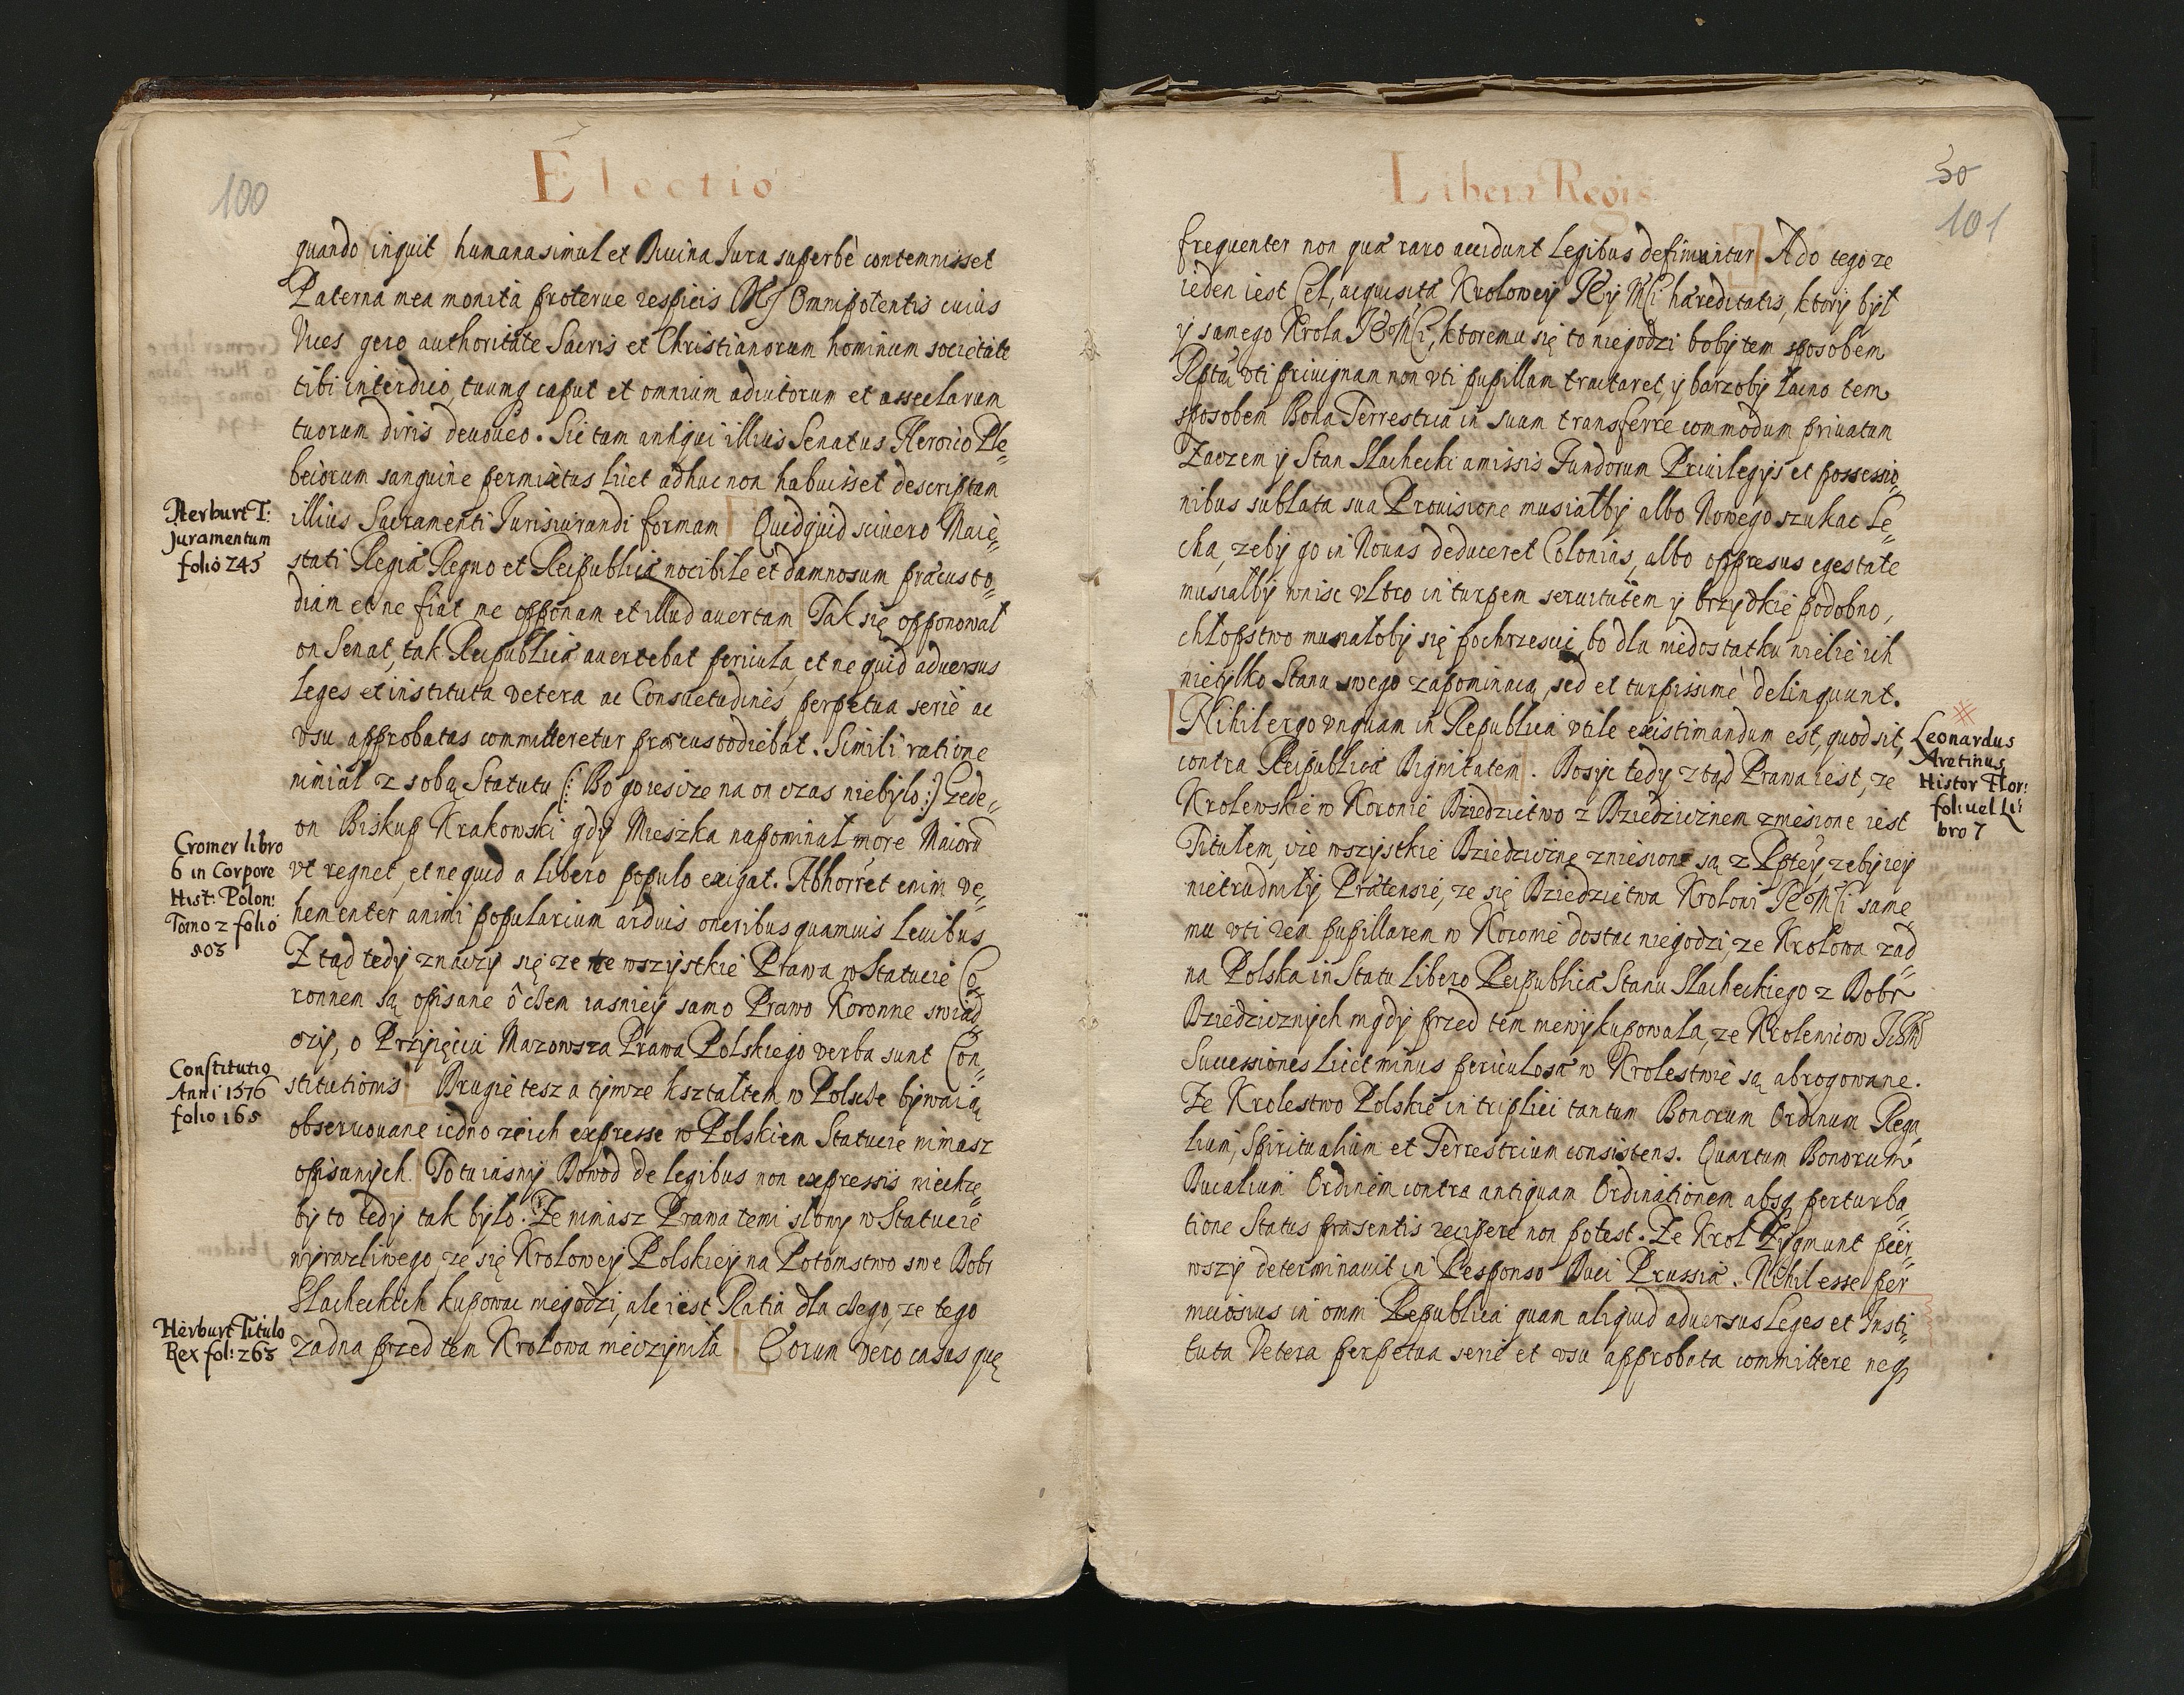 Electio
100
quando inquit humana simul et Divina Jura superbè contemnisset
Paterna mea monita proterve respicis Omnipotentis cuius
Vices gero authoritate Sacris et Christianorum hominum societate
tibi interdico, tuumq caput et omnium adiutorum et asseclarum
tuorum diris devoveo. Sic tam antiqui illius Senatus Heroico Ple=
beiorum sanguine permixtus licet adhuc non habuisset descriptam
illius Sacramenti Jurisiurandi formam Quidquid scivero Maie=
stati Regiæ Regno et Reipublicæ nocibile et damnosum præcusto=
diam et ne fiat me opponam et illud avertam Tak się opponował
on Senat, tak Reipublicæ avertebat pericula, et ne quid adversus
Leges et instituta vetera ac Consuetudines perpetua serie ac
vsu approbatas committeretur præcustodiebat. Simili ratione
nimiał z sobą Statutu (: Bo go iescze na on czas niebyło :) Gede=
on Biskup Krakowski gdy Mieszka napominał more Maiorū
vt regnet, et ne quid a libero populo exigat. Abhorret enim ve=
hementer animi popularium arduis oneribus quamuis Levibus
Z tąd tedy znaczy się ze nie wszystkie Prawa w Statucie Co=
ronnem są opisane ô cżem iasniey samo Prawo Koronne swiad=
czy, o Przyięciu Mazowsza Prawa Polskiego verba sunt Con=
stitutionis Drugie tesz a tymze kształtem w Polscże bywaią
obseruouane iedno ze ich expresse w Polskiem Statucie nimasz
opisanych. To tu iasny Dowod de legibus non expressis niechże=
by to tedy tak było. Ze nimasz Prawa temi słowy w Statucie
wyrazliwego, ze się Krolowey Polskiey na Potomstwo swe Dobr
Slacheckich kupowac niegodzi, ale iest Ratia dla cżego, ze tego
zadna przed tem Krolowa nieczyniła Eorum vero casus quę
Herburt T:
Juramentum
folio 245
Cromer libro
6 in Corpore
Hist: Polon:
Tomo 2 folio
503
Constitutio
Anni 1576
folio 165
Herburt Titulo
Rex fol: 263
Libera Regis
50
101
frequenter non quæ raro accidunt Legibus definiuntur A do tego ze
ieden iest Cel, acquisita Krolowey JEy MCi hæreditatis, ktory był
y samego Krola JEoMCi, ktoremu się to niegodzi boby tem sposobem
Rptā vti privignam non vti pupillam tractaret, y barzoby łacno tem
sposobem Bona Terrestria in suam transferre commodum privatum
Zaczem y Stan Slachecki amissis Fundorum Privilegijs et possessio=
nibus sublata sua Provisione musiałby albo Nowego szukac Le=
cha, zeby go in Novas deduceret Colonias, albo oppresus egestate
musiałby wnisc vltro in turpem servitutem y brzydkie podobno,
chłopstwo musiałoby się pochrzescic, bo dla niedostatku wiele ich
nietylko Stanu swego zapominaią, sed et turpissimè delinquunt.
Nihil ergo vnquam in Republica vtile existimandum est, quod sit,
contra Reipublicæ Dignitatem. Dosyc tedy z tąd Prawa iest, ze
Krolewskie w Koronie Dziedzictwo z Dziedzicznem zniesione iest
Titulem, ize wszystkie Dziedziczne zniesione są z Rptey, zeby iey
nietrudniły Prætensie, ze się Dziedzictwa Krolowi JEoMCi same=
mu vti rem pupillarem w Koronie dostac niegodzi, ze Krolowa zad=
na Polska in Statu libero Reipublicæ Stanu Slacheckiego z Dobr
Dziedzicznych nigdy przed tem niewykupowała, ze Krolewicow
Successiones licet minus periculosæ w Krolestwie są abrogowane.
Ze Krolestwo Polskie in triplici tantum Bonorum Ordinum Rega=
lium, Spiritualium et Terrestrium consistens. Quartum Bonorum
Ducalium Ordinem contra antiquam Ordinationem absq perturba=
tione Status præsentis recipere non potest. Ze Krol Zygmunt pier=
wszy determinavit in Responso Duci Prussiæ. Nihil esse per
niciosius in omni Republica quam aliquid adversus Leges et Insti=
tuta Vetera perpetua serie et vsu approbata committere neq
Leonardus
Aretinus
Histor Flor:
foli vel Li
bro 7